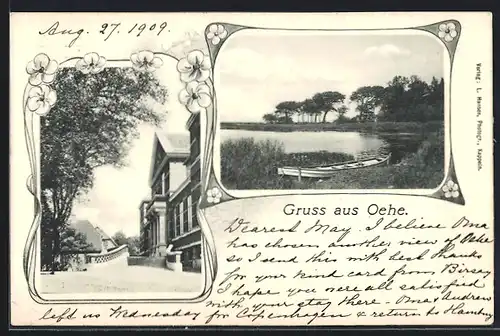 Aug. 27. 1909.
Verlag: L. Hansen, Photogr., Kappeln.
Gruss aus Oehe.
Dearest May. I believe Oma
has chosen another view of Oehe
so I send this with best thanks
for your kind card from Birsay
I hope you were all satisfied
with your stay there. Omas Andrew
left us Wednesday for Copenhagen & return to Hamburg